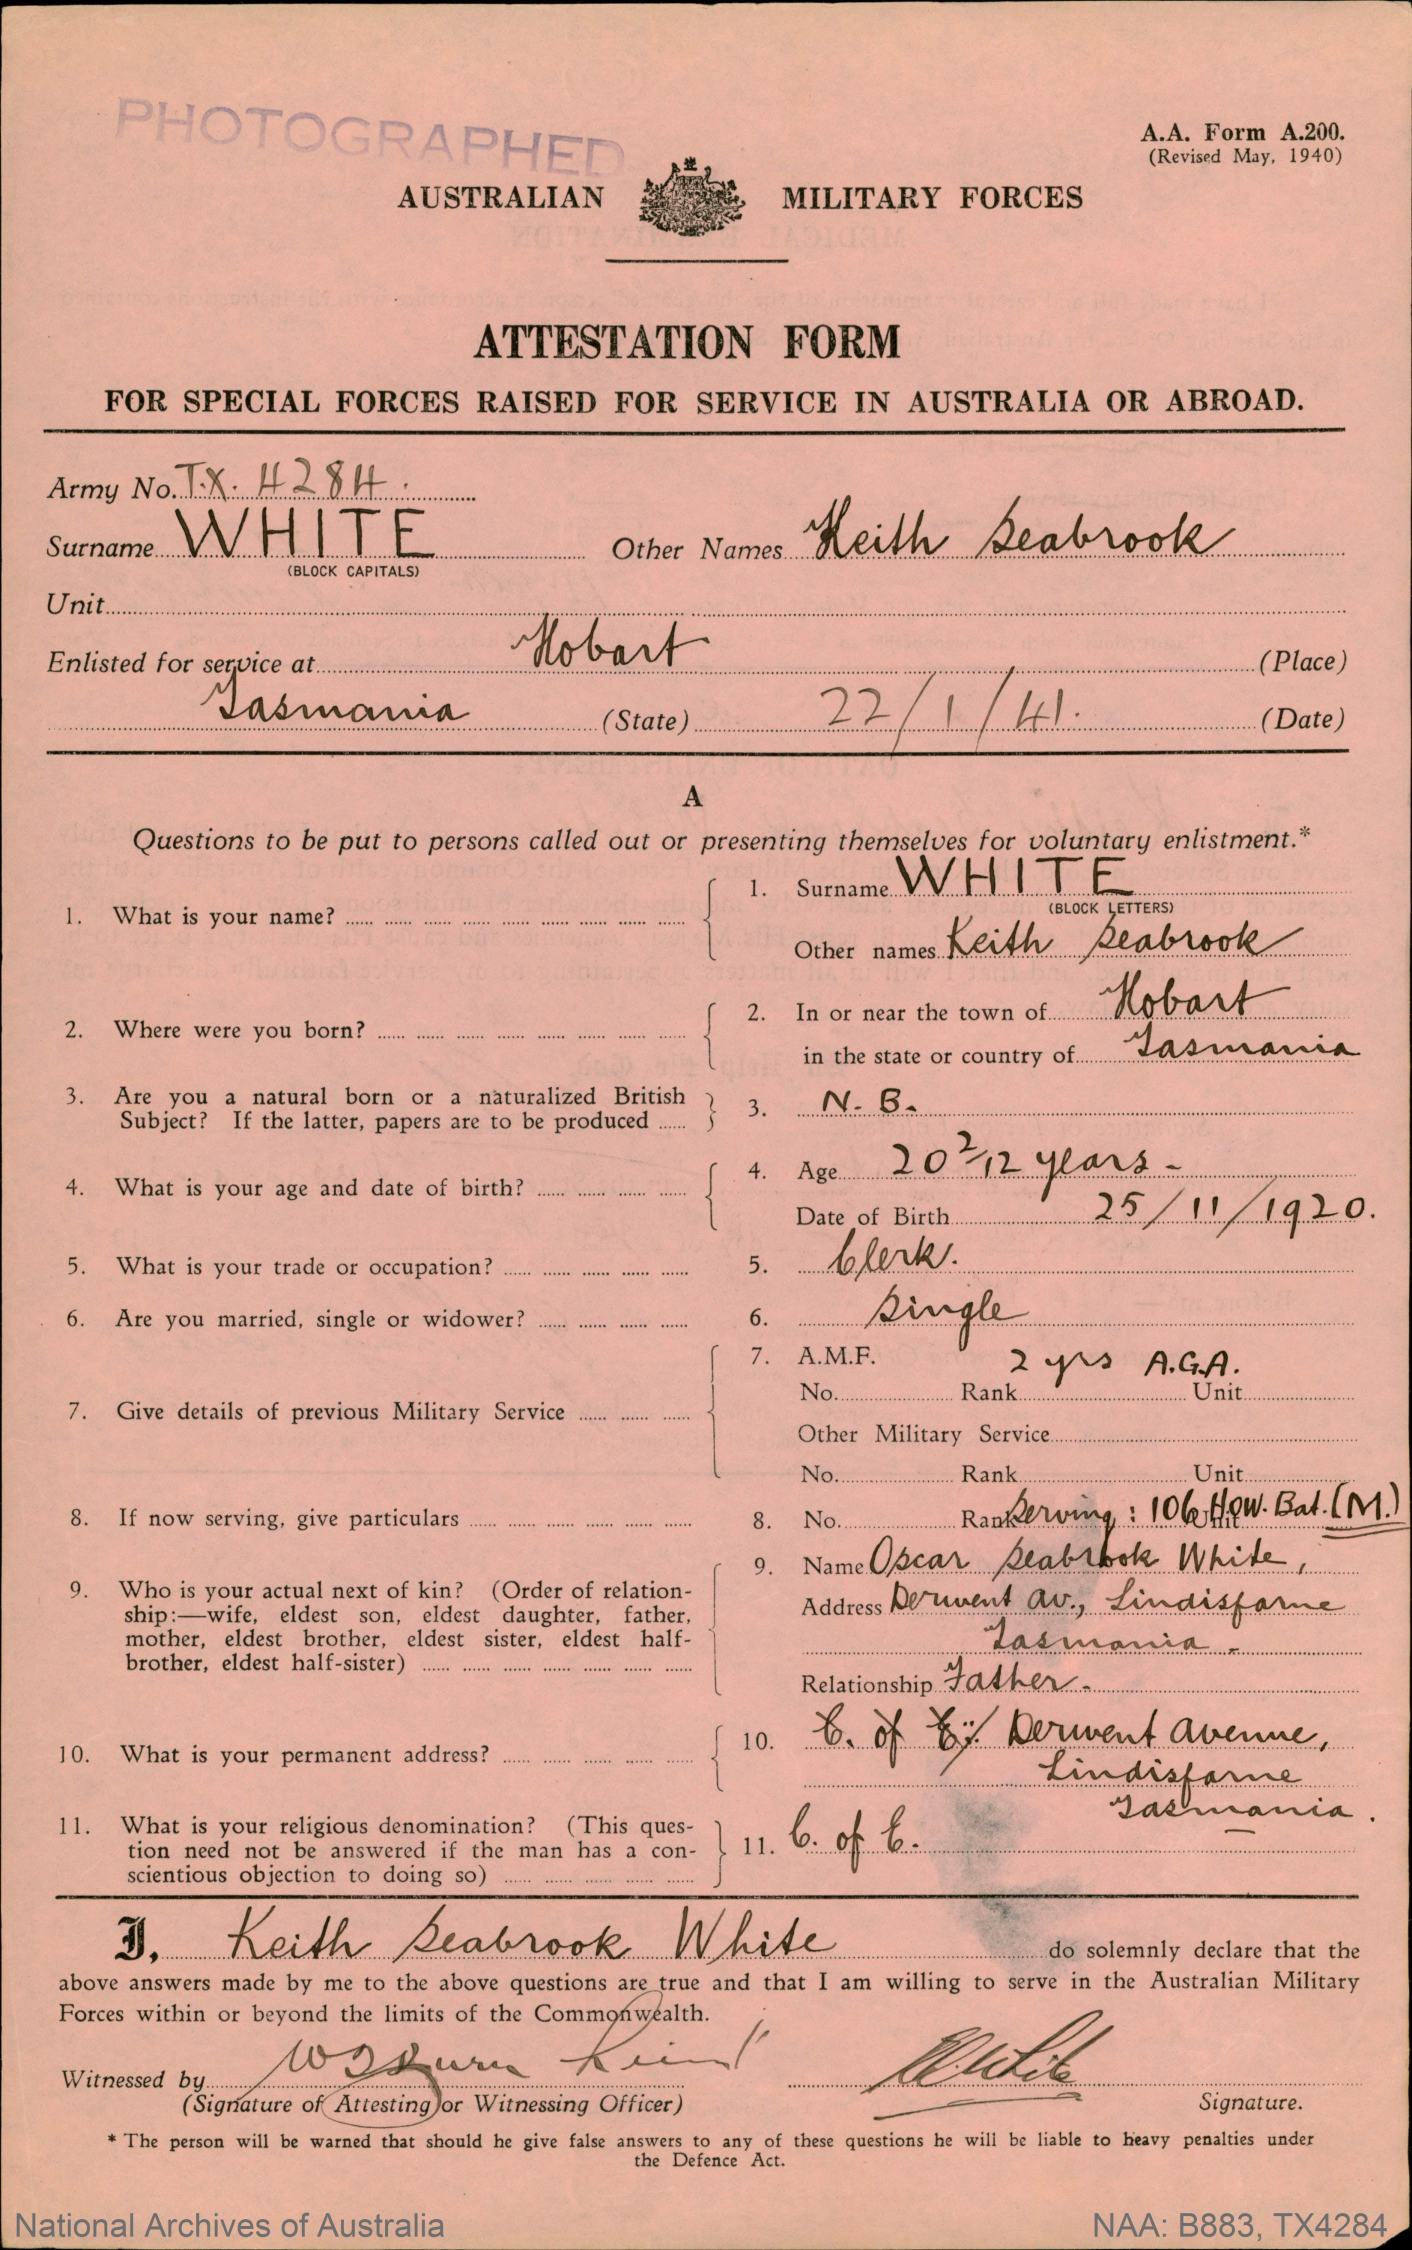 PHOTOGRAPHED
A.A. Form A.200.
(Revised May, 1940)
AUSTRALIAN MILITARY FORCES
ATTESTATION FORM
FOR SPECIAL FORCES RAISED FOR SERVICE IN AUSTRALIA OR ABROAD.
Army No. T.X. 4284.
Surname WHITE Other Names Keith Seabrook
(BLOCK CAPITALS)
Unit
Enlisted for service at Hobart (Place)
Tasmania (State) 22/1/41. (Date)
A
Questions to be put to persons called out or presenting themselves for voluntary enlistment.*
1. What is your name? 1. Surname WHITE
(BLOCK LETTERS)
Other names Keith Seabrook
2. Where were you born? 2. In or near the town of Hobart
in the state or country of Tasmania
3. Are you a natural born or a naturalized British
Subject? If the latter, papers are to be produced 3. N. B.
4. What is your age and date of birth? 4. Age 20 2/12 years -
Date of Birth 25/11/1920.
5. What is your trade or occupation? 5. Clerk.
6. Are you married, single or widower? 6. Single
7. Give details of previous Military Service 7. A.M.F. 2 yrs A.G.A.
No. Rank Unit
Other Military Service
No. Rank Unit
8. If now serving, give particulars 8. No. Rank Unit Serving: 106 How. Bat. (M.)
9. Who is your actual next of kin? (Order of relation-
ship:—wife, eldest son, eldest daughter, father,
mother, eldest brother, eldest sister, eldest half-
brother, eldest half-sister)
9. Name Oscar Seabrook White,
Address Derwent Av., Lindisfarne
Tasmania -
Relationship Father -
10. What is your permanent address? 10. C. of E. Derwent Avenue,
Lindisfarne
Tasmania.
11. What is your religious denomination? (This ques-
tion need not be answered if the man has a con-
scientious objection to doing so)
11. C. of E.
I, Keith Seabrook White do solemnly declare that the
above answers made by me to the above questions are true and that I am willing to serve in the Australian Military
Forces within or beyond the limits of the Commonwealth.
Witnessed by
(Signature of Attesting or Witnessing Officer) Signature.
* The person will be warned that should he give false answers to any of these questions he will be liable to heavy penalties under
the Defence Act.
National Archives of Australia NAA: B883, TX4284